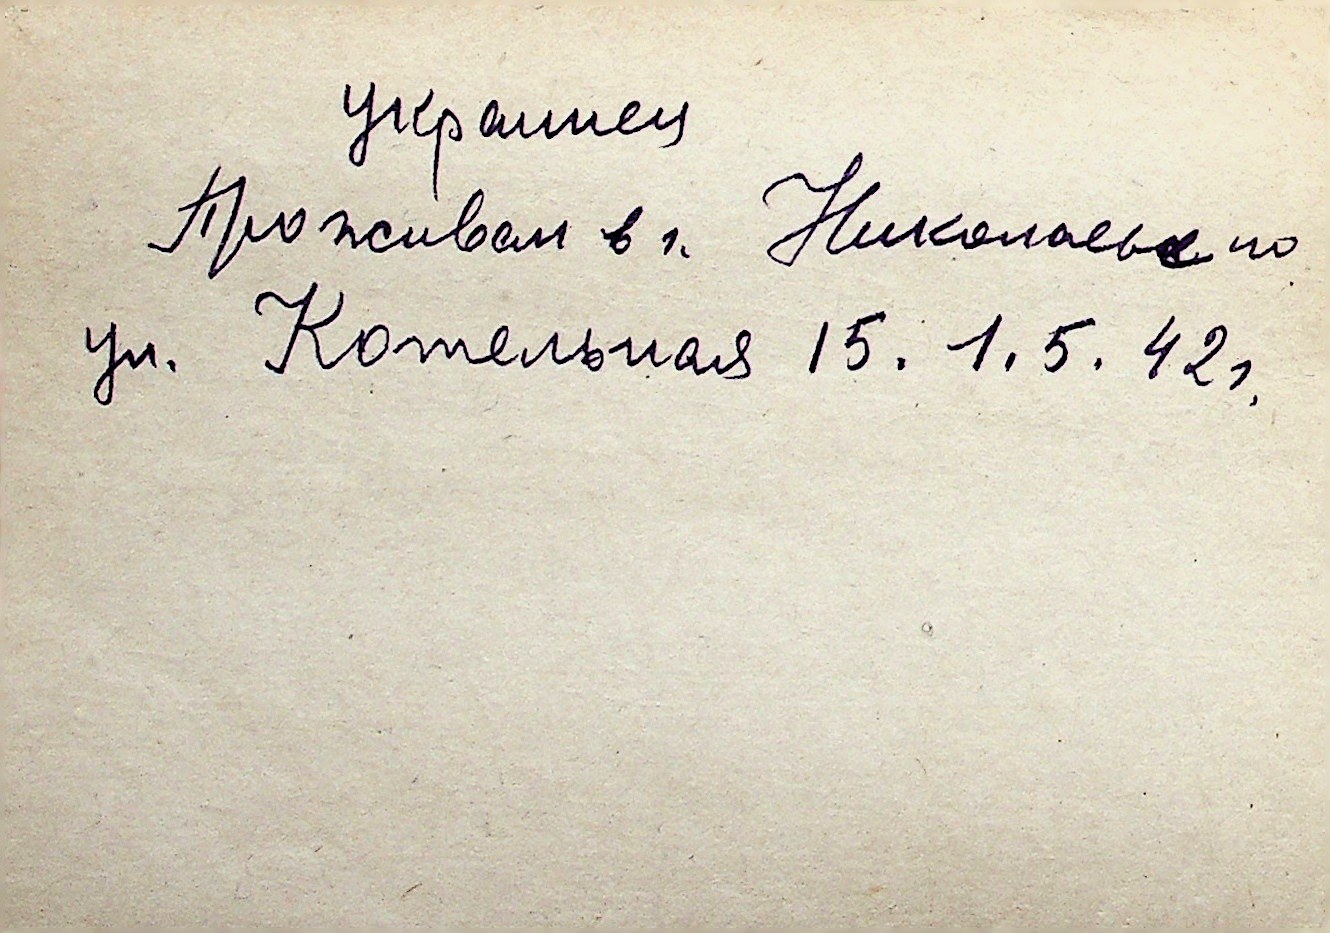 украинец
Проживал в г. Николаеве по
ул. Котельная 15. 1.5.42г.